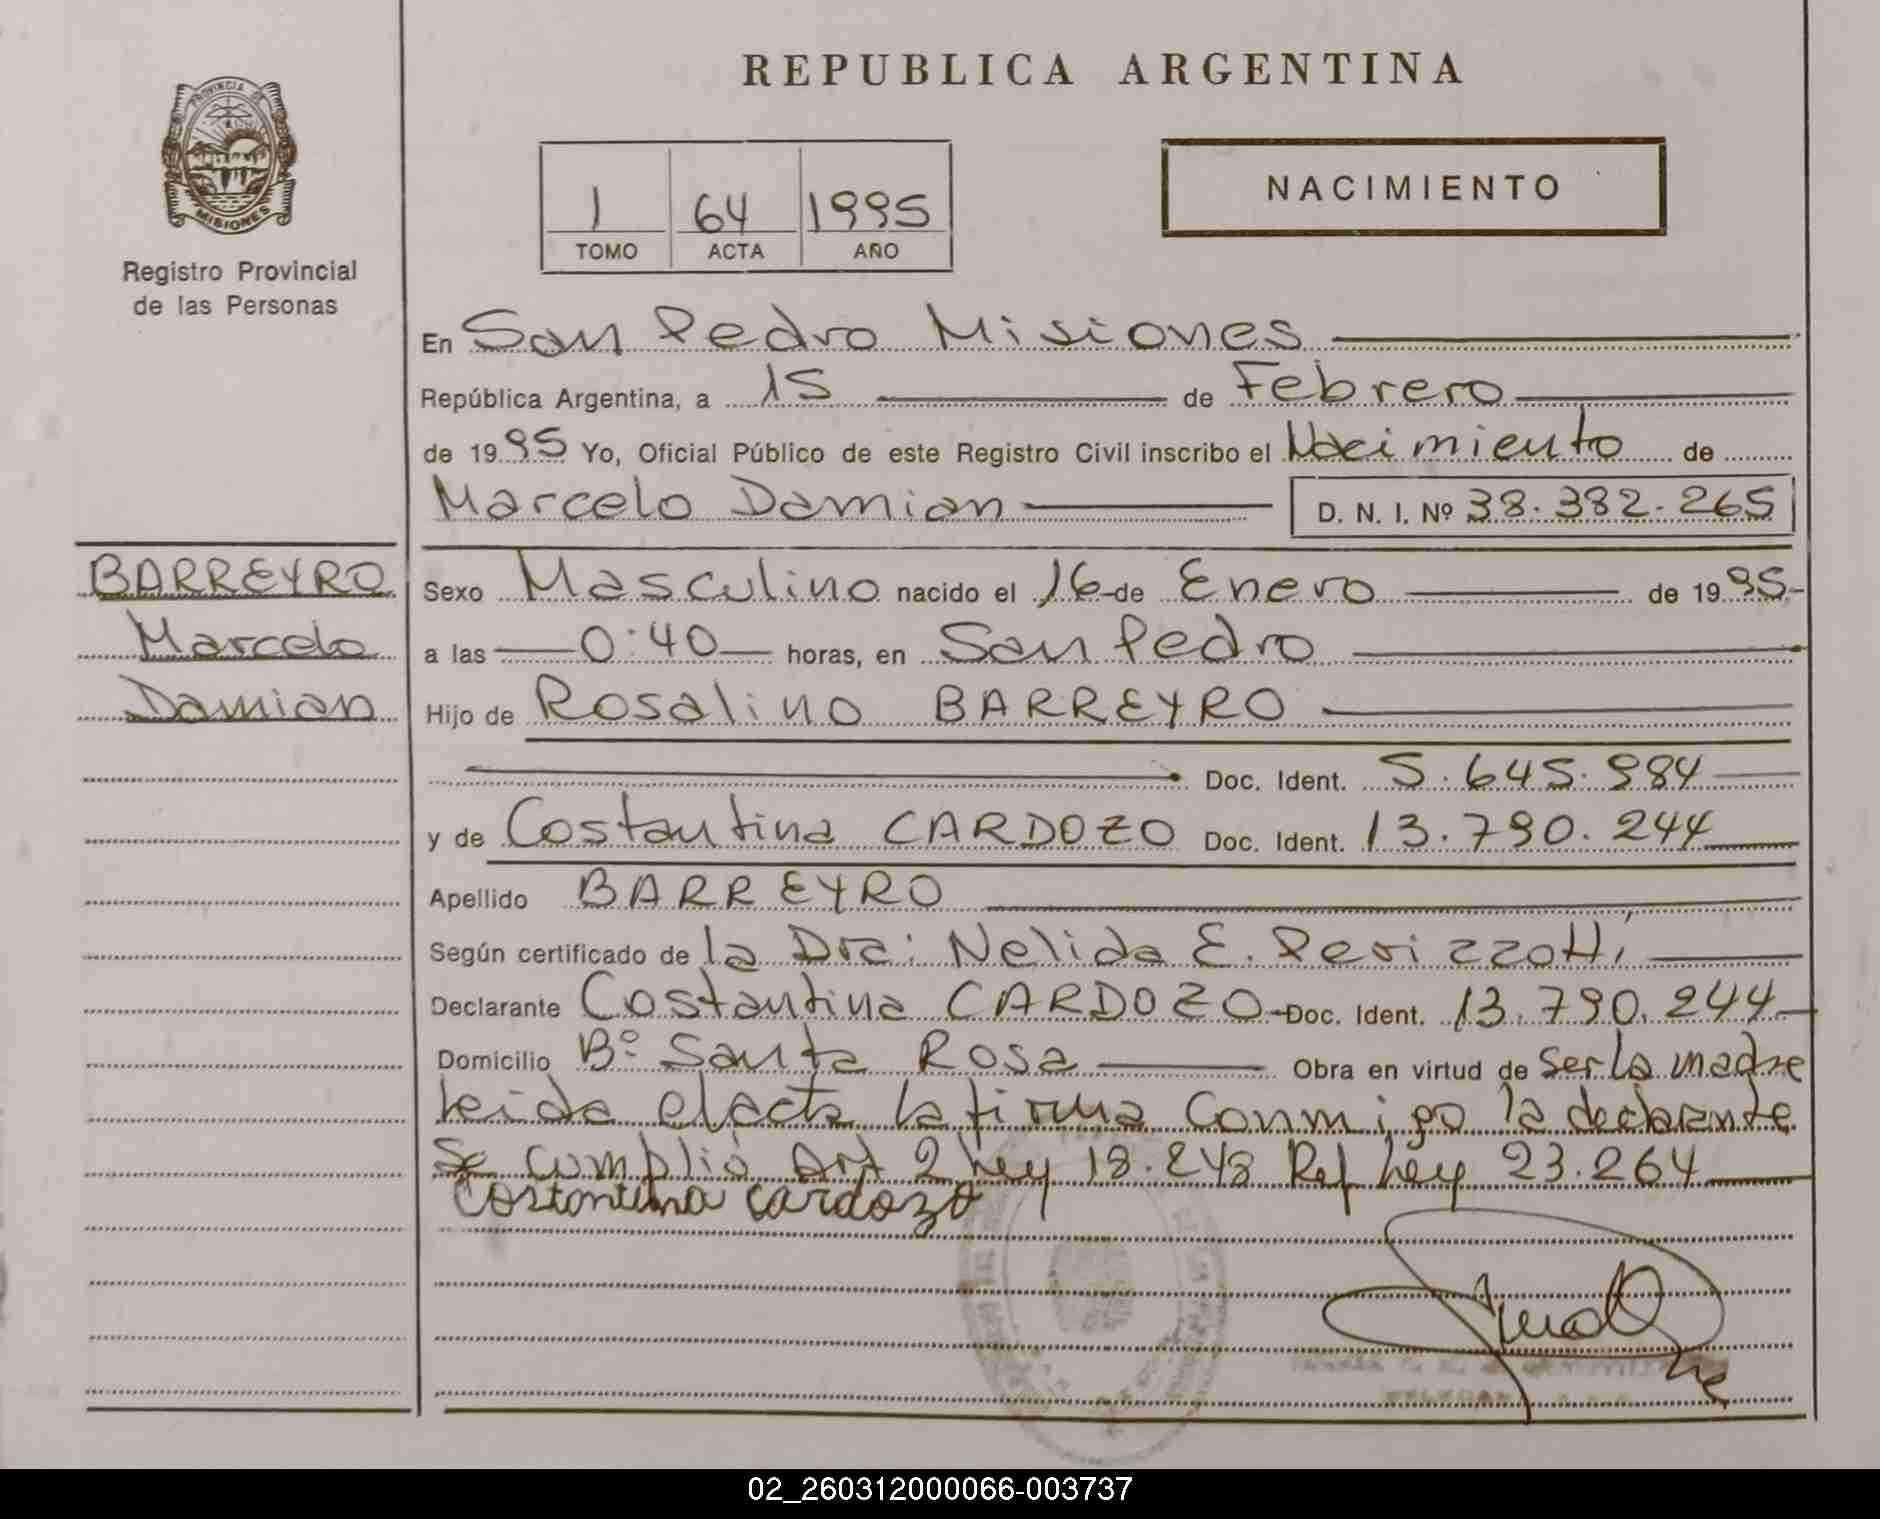 REPUBLICA ARGENTINA
PROVINCIA DE
MISIONES
Registro Provincial
de las Personas
1 64 1995
TOMO ACTA AÑO
NACIMIENTO
En San Pedro Misiones
República Argentina, a 15 de Febrero
de 1995 Yo, Oficial Público de este Registro Civil inscribo el Nacimiento de
Marcelo Damian D. N. I. Nº 38.382.265
BARREYRO
Marcelo
Damian
Sexo Masculino nacido el 16 de Enero de 1995
a las 0:40 horas, en San Pedro
Hijo de Rosalino BARREYRO
Doc. Ident. 5.645.984
y de Costantina CARDOZO Doc. Ident. 13.790.244
Apellido BARREYRO
Según certificado de la Dra: Nelida E.
Declarante Costantina CARDOZO Doc. Ident. 13.790.244
Domicilio Bº Santa Rosa Obra en virtud de ser la madre
leida el acta la firma conmigo la declarante
Se cumplió Art 2 Ley 18.248 Ref Ley 23.264
Costantina Cardozo
02_260312000066-003737